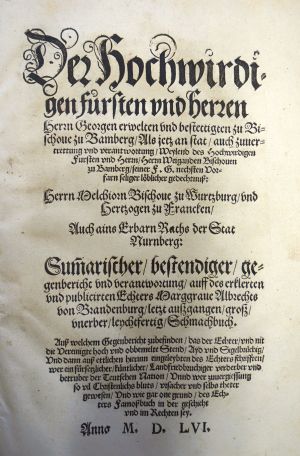 Der Hochwirdi-
gen fürsten vnd herren
Herrn Georgen erwelten vnd bestettigten zu Bi-
schoue zu Bamberg/ Als jetz an stat/ auch zuuer-
trettung vnd verantwortung/ Weylend des Hochwirdigen
Fursten vnd Herrn/ Herrn Weiganden Bischouen
zu Bamberg/ seiner F. G. nechsten Vor-
farn seliger löblicher gedechtnuß:
Herrn Melchiorn Bischoue zu Wurtzburg/ vnd
Hertzogen zu Francken/
Auch ains Erbarn Raths der Stat
Nurnberg:
Sum̃arischer/ bestendiger/ ge-
genbericht vnd verantwortung/ auff des erklerten
vnd publicirten Echters Marggraue Albrechts
von Brandenburg/ letzt außgangen/ groß/
vnerber/ leychtfertig/ Schmachbuch.
Auß welchem Gegenbericht zubefinden/ das der Echter/ vnd nit
die Verainigte hoch vnd obbemelte Stend/ Ayd vnd Sigelbrüchig/
Vnd dann auß etlichen herinn eingeleybten des Echters schrifften/
wer ein fürsetzlicher/ kuntlicher/ Landfriedbruchiger verderber vnd
betruber der Teutschen Nation/ Vnnd wer vnuergiessung
so vil Christenlichs bluts/ vrsacher vnd selbs theter
gewesen/ Vnd wie gar one grund/ des Ech-
ters Famoßbuch in der geschicht
vnd im Rechten sey.
Anno M. D. LVI.